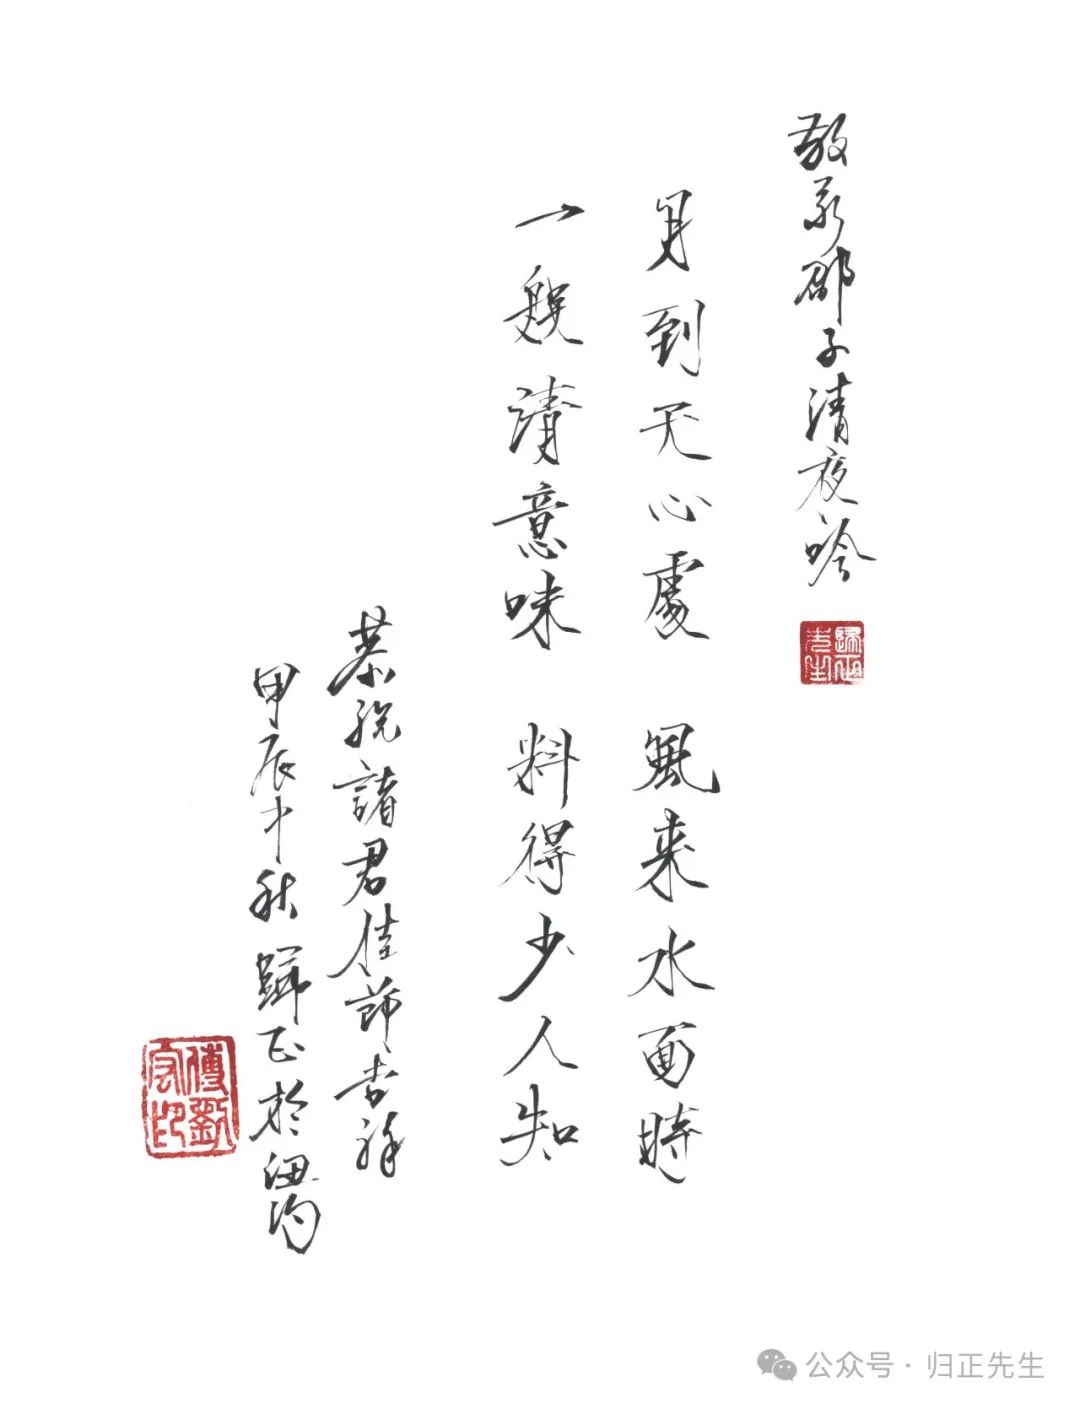 敬录邵子清夜吟
歸正先生
月到天心處 風来水面時
一般清意味 料得少人知
恭祝諸君佳節吉祥
甲辰中秋歸正於
傅劉宏印
公众号·归正先生